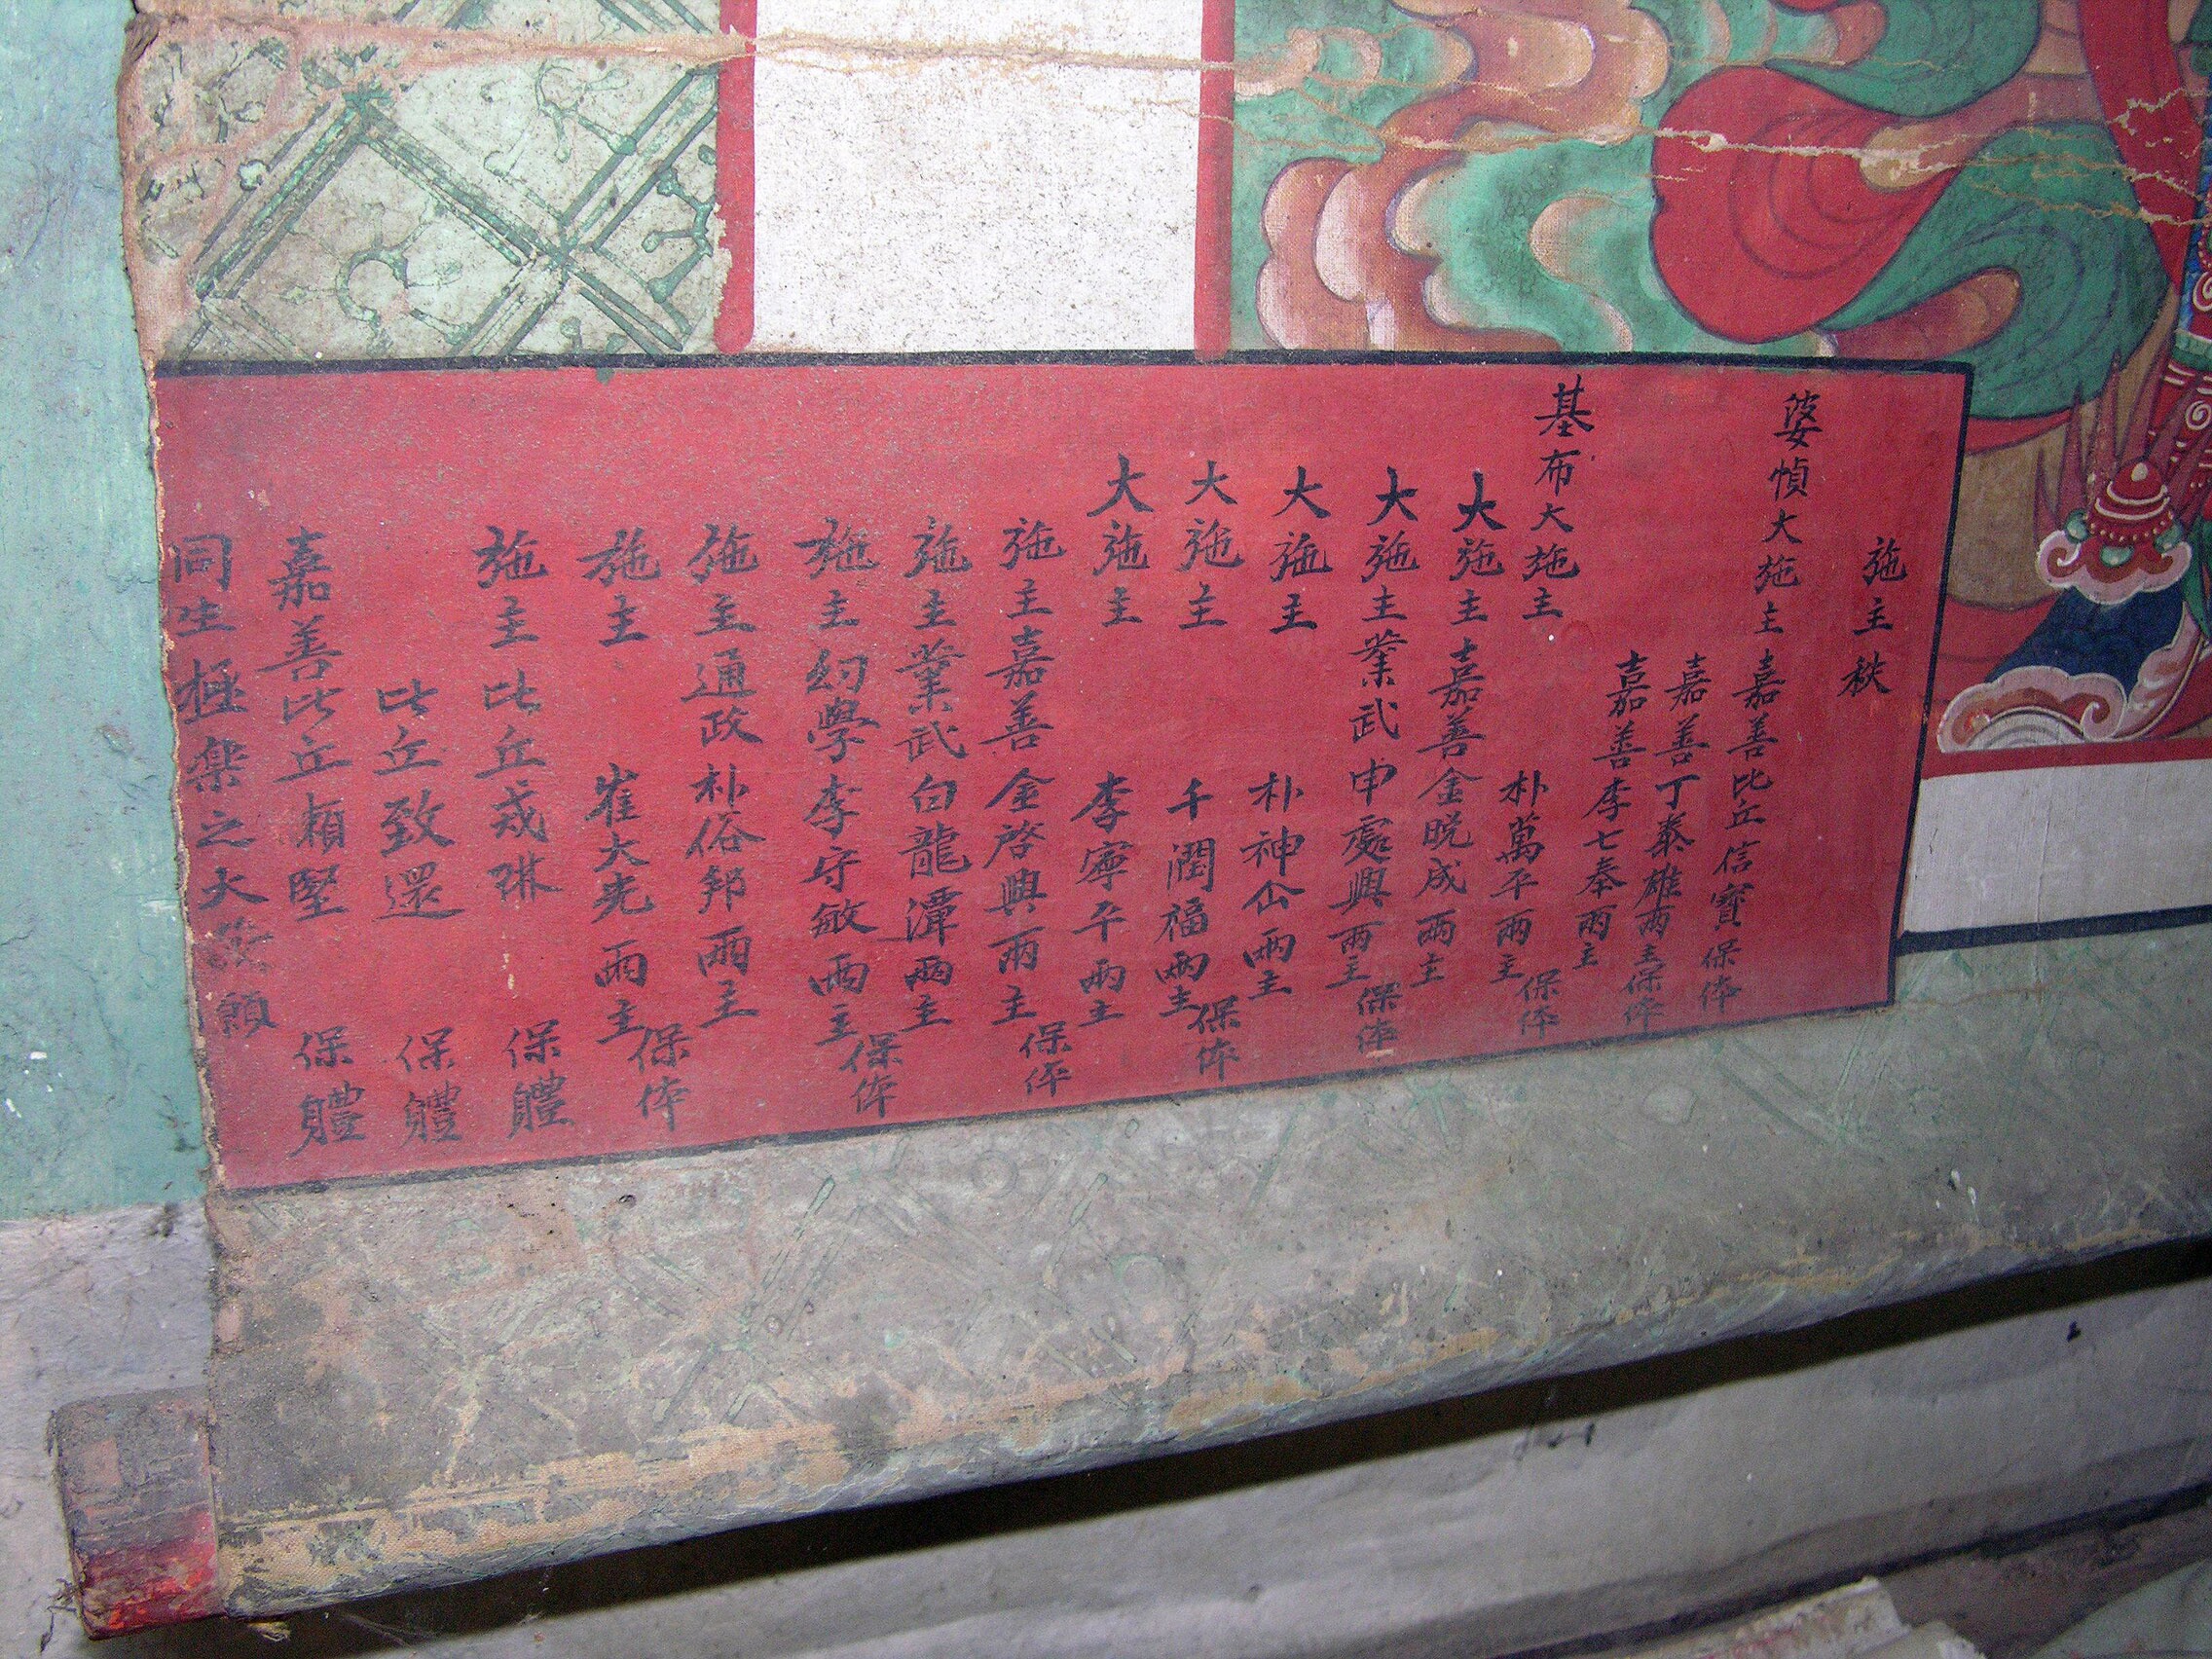 施主秩
婆幀大施主嘉善比丘信寶保体
嘉善丁泰雄兩主保体
嘉善李七奉兩主
基布大施主朴萬平兩主保体
大施主嘉善金晩成兩主
大施主業武申處興兩主保体
大施主朴神仚兩主
大施主千潤福兩主保体
大施主李寧千兩主
施主嘉善金啓興兩主保体
施主業武白龍潭兩主
施主幼學李守敏兩主保体
施主通政朴俗邦兩主
施主崔大光兩主保体
施主比丘戒琳保體
比丘致還保體
嘉善比丘賴堅保體
同生極楽之大発願